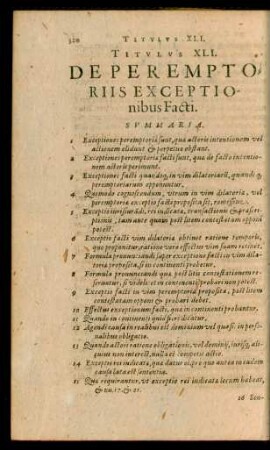 320 TITVLVS XLI.
TITVLVS XLI.
DE PEREMPTO-
RIIS EXCEPTIO-
nibus Facti.
SVMMARIA.
1 Exceptiones peremptoriæ sunt, quæ actoris intentionem vel
actionem elidunt & perpetuo obstant.
2 Exceptiones peremptoriæ facti sunt, quæ de facto intentio-
nem actoris perimunt.
3 Exceptiones facti quando, in vim dilatoriarũ, quando &
peremptoriarum opponuntur.
4 Quomodo cognoscendum, utrum in vim dilatoriæ, vel
peremptoriæ exceptio facti proposita sit, remissive.
5 Exceptio iurisiurãdi, rei iudicatæ, transactionis & præscri-
ptionis, tam ante quam post litem contestatam opponi
potest.
6 Exceptio facti vim dilatoriæ obtinet ratione temporis,
quo proponitur, ratione vero effectus vim suam retinet.
7 Formula pronunciandi super exceptione facti in vim dila-
toriæ proposita, si in continenti probetur.
8 Formula pronunciandi quæ post litis contestationem re-
servantur, si videlicet in continenti probari non potest.
9 Exceptio facti in vim peremptoriæ proposita, post litem
contestatam opponi & probari debet.
10 Effectus exceptionum facti, quæ in continenti probantur.
11 Quando in continenti quid fieri dicatur.
12 Agendi causa in realibus est dominium vel quasi: in perso-
nalibus obligatio.
13 Quando actori ratione obligationis, vel dominij, iurisq́; ali-
quid non interest, nulla ei competit actio.
14 Exceptio rei iudicatæ, qua datur ei, pro quo antea in eadem
causa lata est sententia.
15 Quæ requirantur, ut exceptio rei iudicatæ locum habeat,
& nu. 17. & 21.